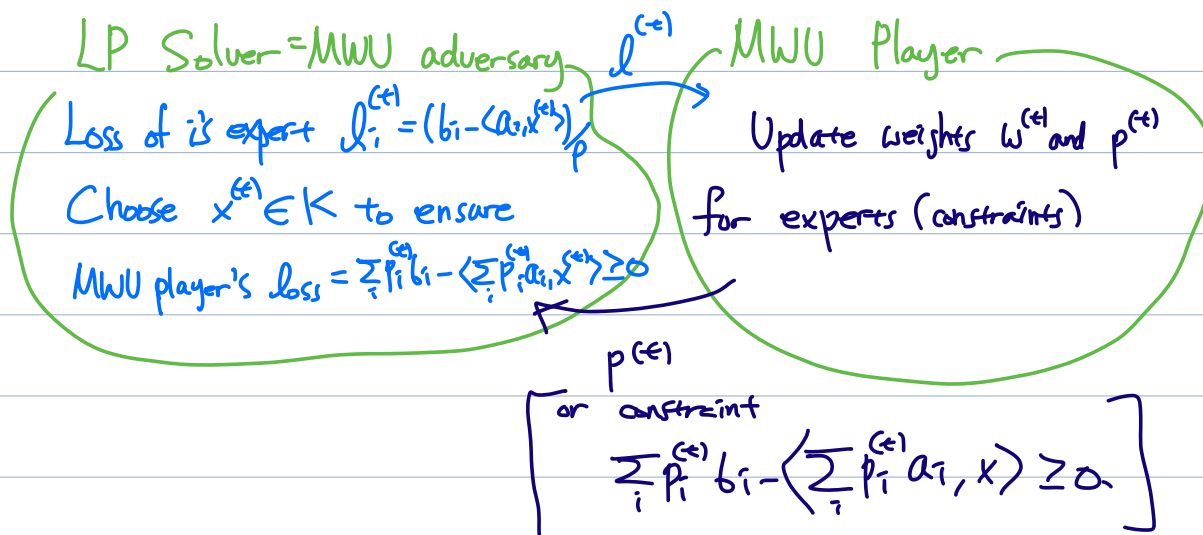 LP Solver = MWU adversary
l^(t)
MWU Player
Loss of i's expert l_i^(t) = (b_i - <a_i, x^(t)>)/ρ
Choose x^(t) ∈ K to ensure
MWU player's loss = Σ_i p_i^(t) b_i - <Σ_i p_i^(t) a_i, x^(t)> ≥ 0
Update weights w^(t) and p^(t)
for experts (constraints)
p^(t)
or constraint
Σ_i p_i^(t) b_i - <Σ_i p_i^(t) a_i, x> ≥ 0.